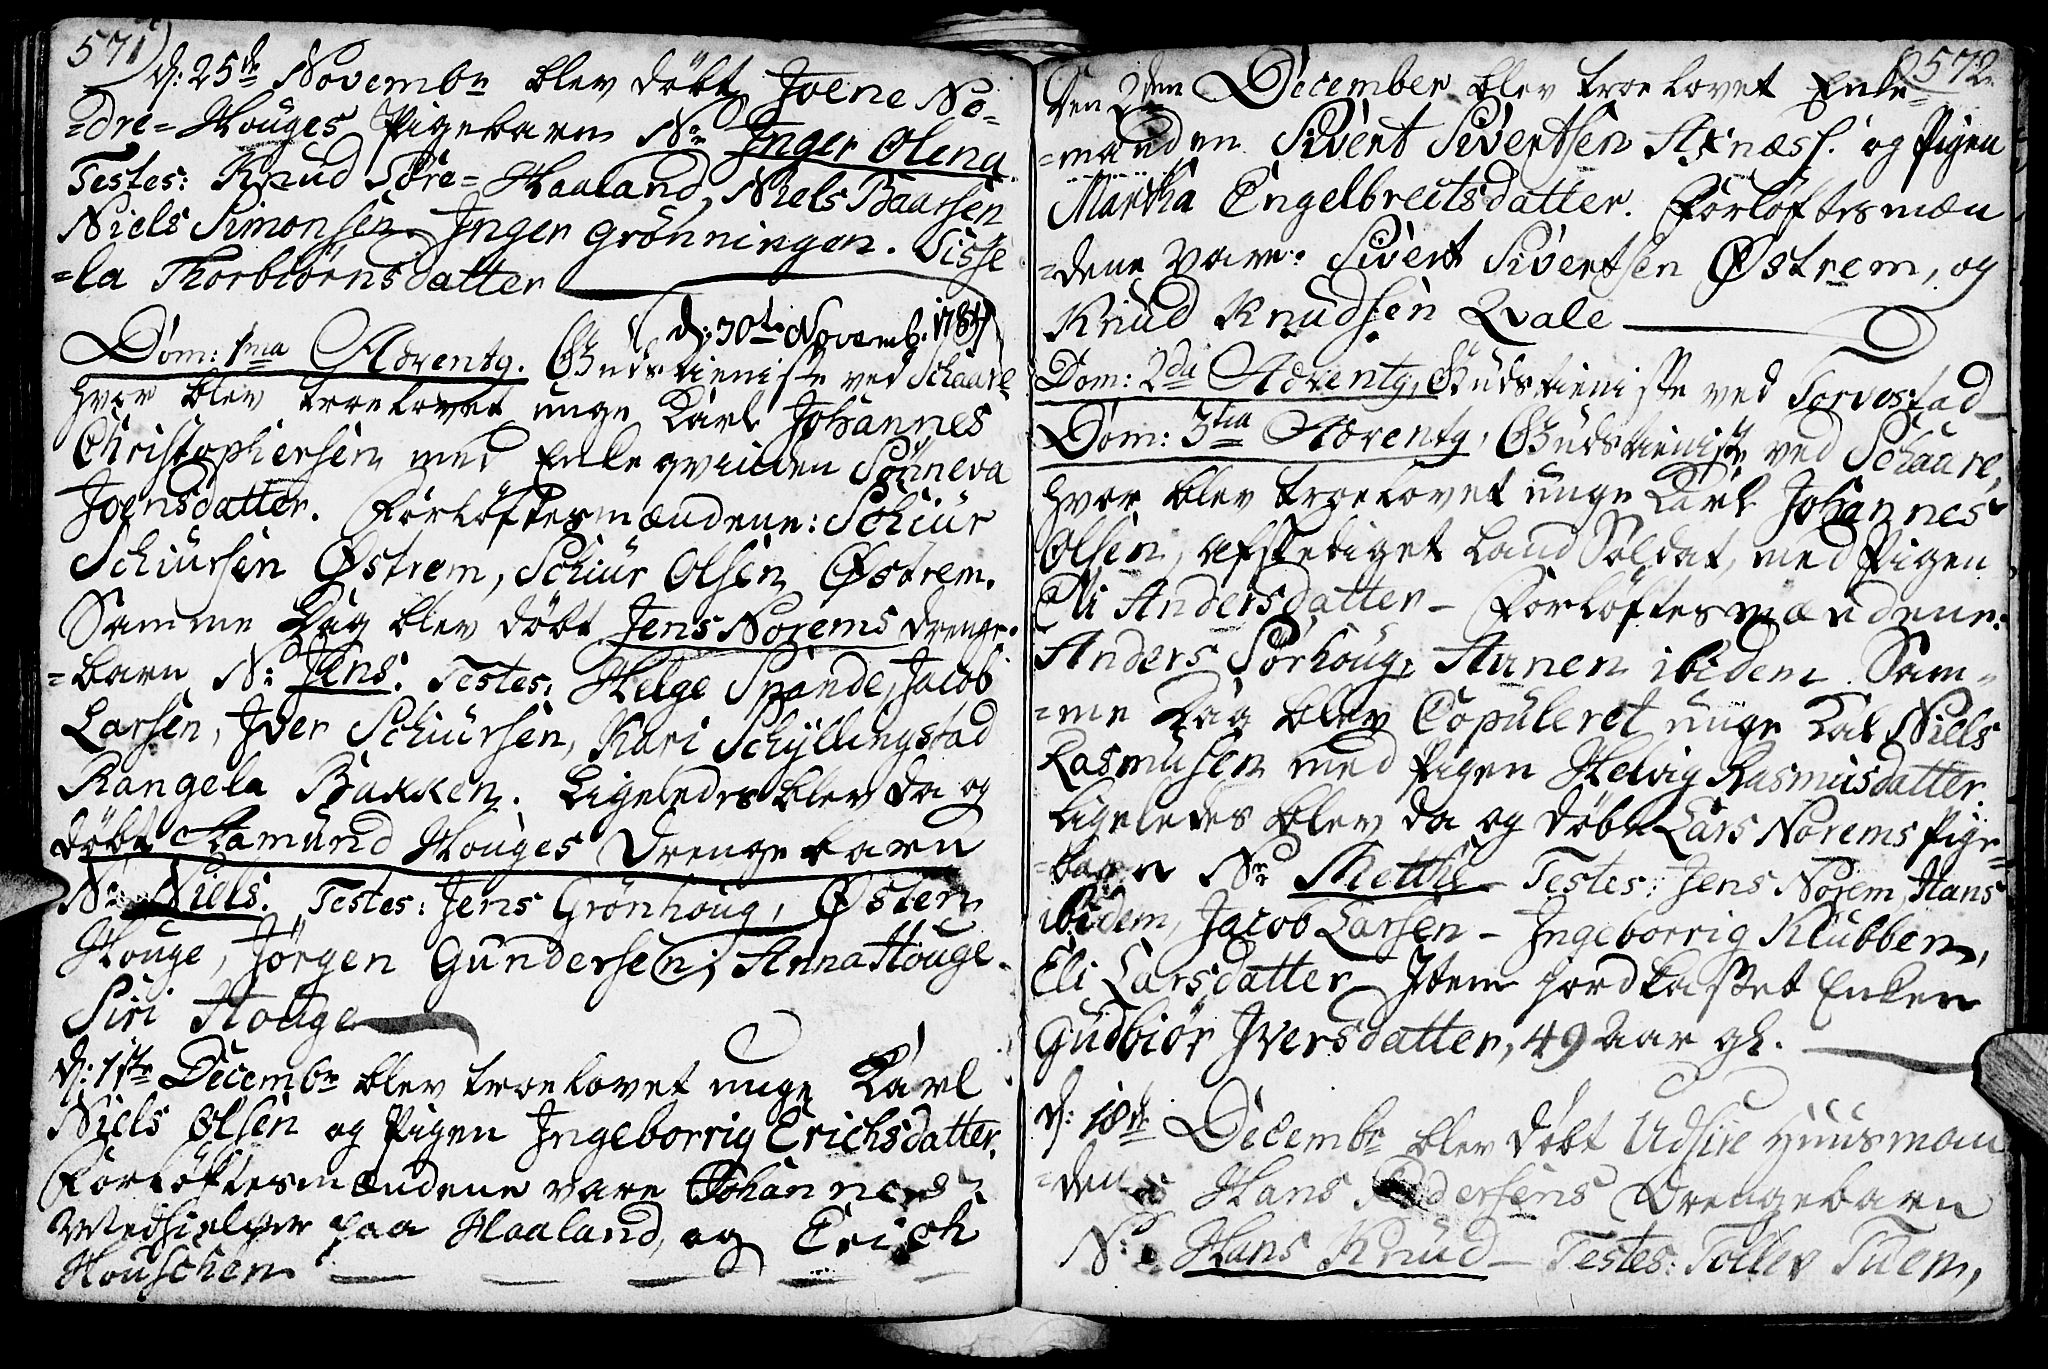 571)
d: 25de Novembr blev döbt Joene Ne-
=dre= Houges Pigebarn Nr Inger Olena.
Testes: Knud Söre= Haaland, Niels Baarsen
Niels Simonsen. Inger Grönningen. Sisse
=la Thorbiörnsdatter
(d: 30te Novemb: 1784)
Dom: 1ma Adventq. Gudstieniste ved Schaare
hvor blev troelovet unge Karl Johannes
Christophersen med Enkeqvinden Sönneva
Joensdatter. Forlöftesmændene: Schiur
Schiursen Østrem, Schiur Olsen Østrem.
Samme Dag blev döbt Jens Norems Drenge-
=barn N: Jens. Testes: Helge Spande, Jacob
Larsen, Iver Schiursen, Kari Schyllingstad
Rangela Bakken. Ligeledes blev da og
döbt Aamund Houges Drengebarn
N: Niels. Testes: Jens Grönhoug, Østen
Houge, Jörgen Gundersen, Anna Houge.
Siri Houge
d: 1ste Decembr blev troelovet unge Karl
Niels Olsen og Pigen Ingeborrig Erichsdatter.
Forlöftesmændene vare Johannes
Medhielper paa Haaland, og Erich
Houschen
572.
Den 2den December blev troelovet Enke-
=manden Sivert Sivertsen Axnæss. og Pigen
Martha Engelbreitsdatter. Forlöftesmæn
=dene vare: Sivert Sivertsen Østrem, og
Knud Knudsen Qvale
Dom: 2da Adventq, Gudstieniste ved Torvestad
Dom: 3tia Adventq, Gudstieniste ved Schaare,
hvor blev troelovet unge Karl Johannes
Olsen, afskediget Land Soldat, med Pigen
Eli Andersdatter – Forlöftesmændene:
Anders Sörhoug, Aanen ibidem. Sam-
=me Dag blev Copuleret unge Kal Niels
Rasmusen med Pigen Helvig Rasmusdatter.
Ligeledes blev da og döbt Lars Norems Pige-
=barn Nr Metthe – Testes: Jens Norem, Hans
ibidem, Jacob Larsen – Ingeborrig Klubben,
Eli Larsdatter – Item Jordkastet Enken
Gudbiör Iversdatter, 49 Aar gl.
d: 18de Decembr blev döbt Udsire Huusman
=dens Hans Pedersens Drengebarn
N: Hans Knud – Testes: Tollev Tuem,